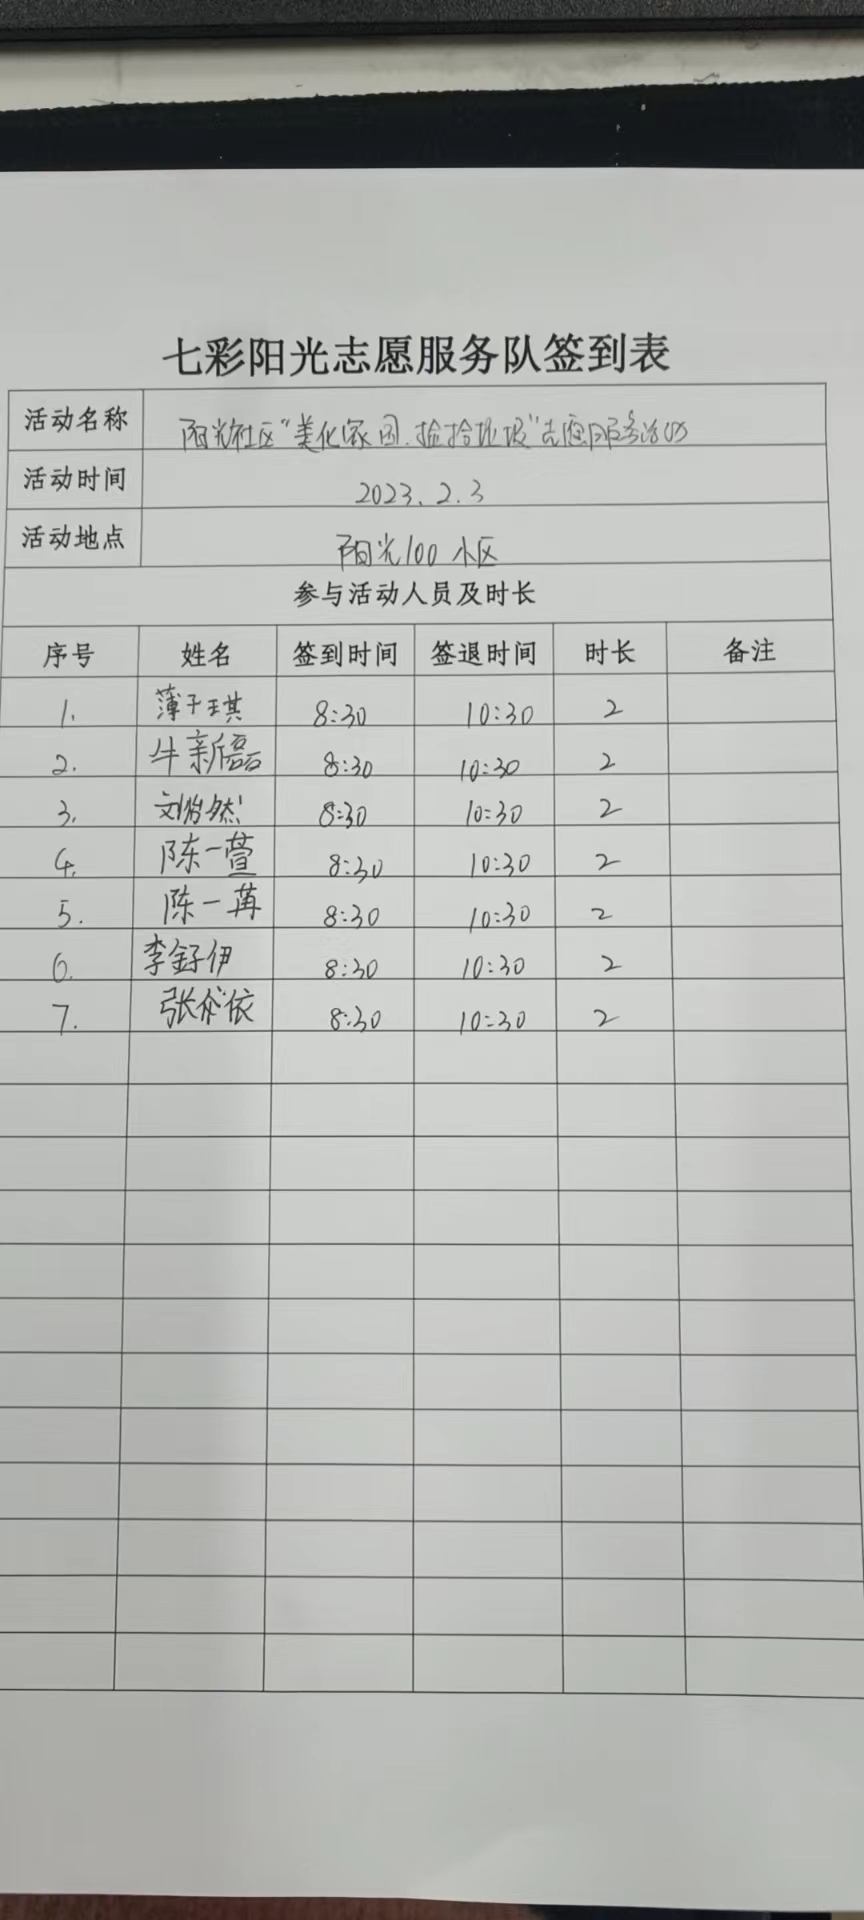 七彩阳光志愿服务队签到表
活动名称 阳光社区“美化家园.捡拾垃圾”志愿服务活动
活动时间 2023.2.3
活动地点 阳光100小区
参与活动人员及时长
序号 姓名 签到时间 签退时间 时长 备注
1. 薄子琪 8:30 10:30 2
2. 牛新磊 8:30 10:30 2
3. 8:30 10:30 2
4. 陈一萱 8:30 10:30 2
5. 陈一苒 8:30 10:30 2
6. 8:30 10:30 2
7. 8:30 10:30 2